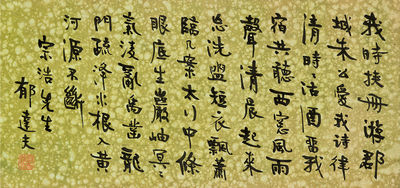 我時挾冊游郡
城朱公愛我詩律
清時時沽酒留我
宿共聽西窓風雨
聲清晨起來
忽洗盥短衣飄蕭
臨几案太行中條
眼底生巖岫冥冥
氣凌亂禹鑿龍
門疏水根入黃
河源不斷
宗浩先生
郁達夫